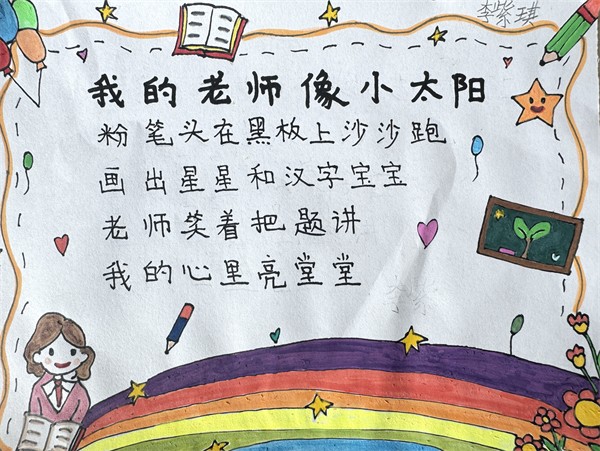 李紫琪
我的老师像小太阳
粉笔头在黑板上沙沙跑
画出星星和汉字宝宝
老师笑着把题讲
我的心里亮堂堂
李紫